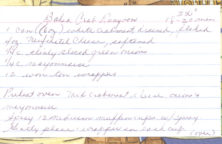 Baked Crab Rangoon 350°
18-20 min
1 can (6oz) white crabmeat drained, flaked
4oz Neufchatel Cheese, softened
1/4 c thinly sliced green onions
1/4 c mayonnaise
12 won ton wrappers
Preheat oven. Mix crabmeat, cheese, onions
mayonnaise
Spray 12 medium muffin cups w/spray
Gently place 1 wrapper in each cup
(over)